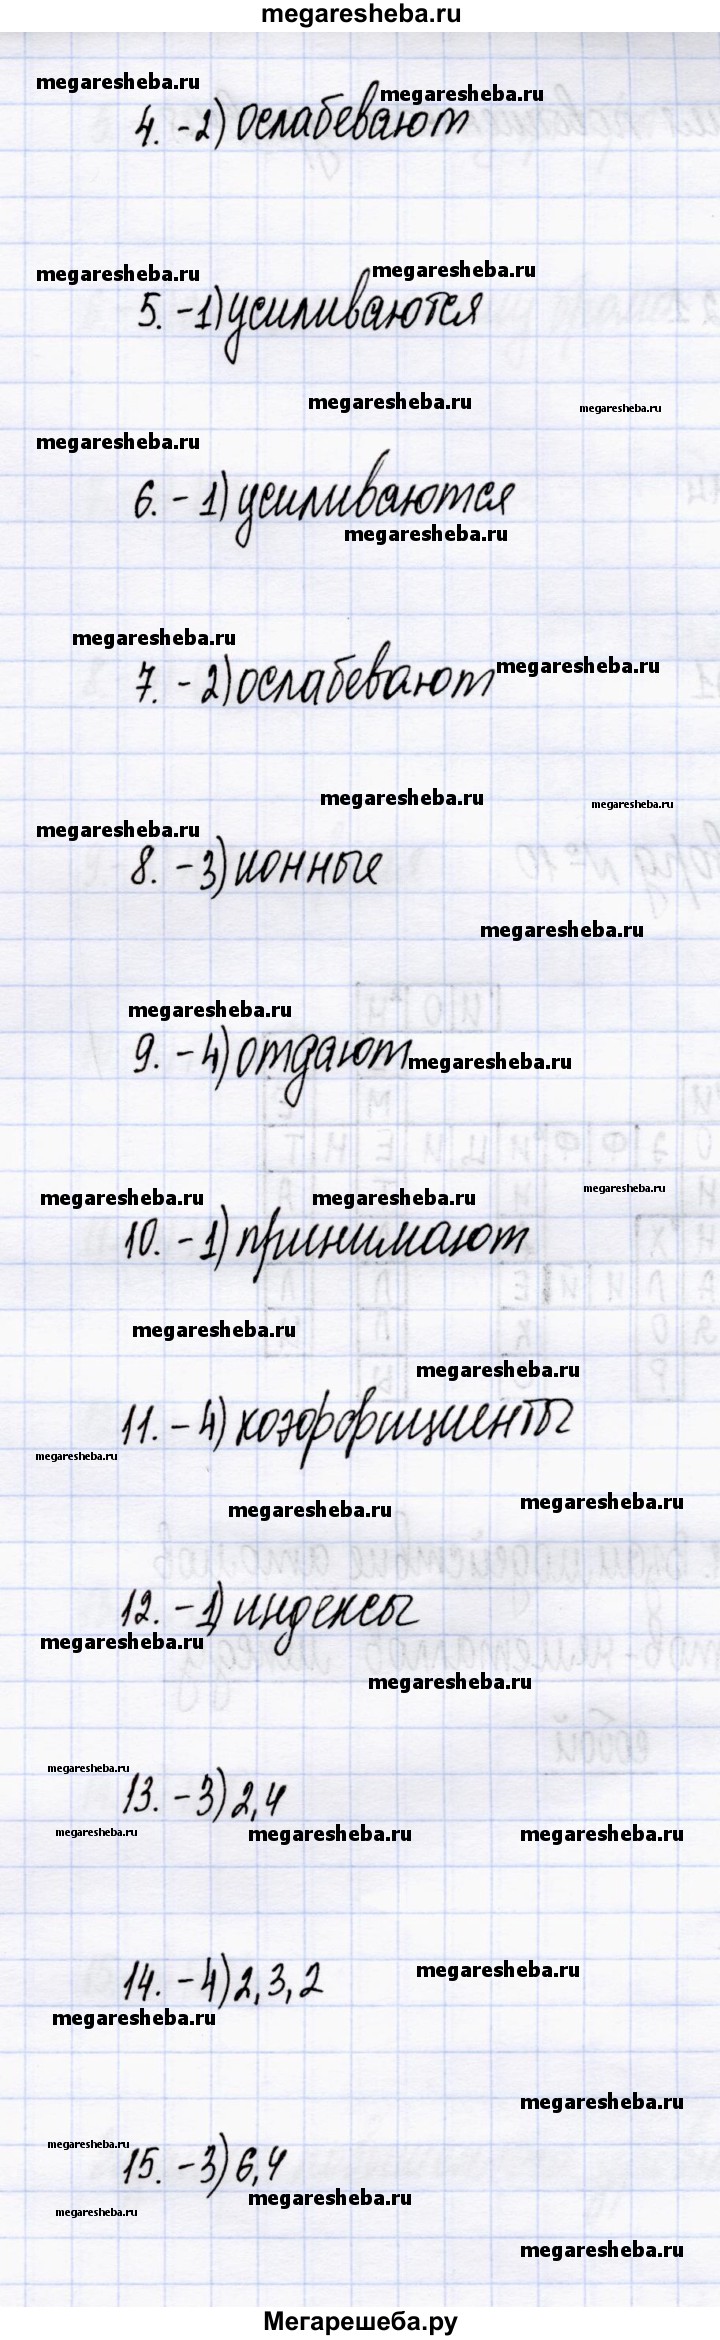 megaresheba.ru
megaresheba.ru
megaresheba.ru
4. -2) ослабевают
megaresheba.ru
megaresheba.ru
5. -1) усиливаются
megaresheba.ru
megaresheba.ru
megaresheba.ru
6. -1) усиливаются
megaresheba.ru
megaresheba.ru
megaresheba.ru
7. -2) ослабевают
megaresheba.ru
megaresheba.ru
megaresheba.ru
8. -3) ионные
megaresheba.ru
megaresheba.ru
9. -4) отдают
megaresheba.ru
megaresheba.ru
megaresheba.ru
megaresheba.ru
10. -1) принимают
megaresheba.ru
megaresheba.ru
11. -4) коэффициенты
megaresheba.ru
megaresheba.ru
megaresheba.ru
12. -1) индексы
megaresheba.ru
megaresheba.ru
megaresheba.ru
13. -3) 2,4
megaresheba.ru
megaresheba.ru
megaresheba.ru
megaresheba.ru
14. -4) 2,3,2
megaresheba.ru
megaresheba.ru
megaresheba.ru
15. -3) 6,4
megaresheba.ru
megaresheba.ru
megaresheba.ru
Мегарешеба.ру